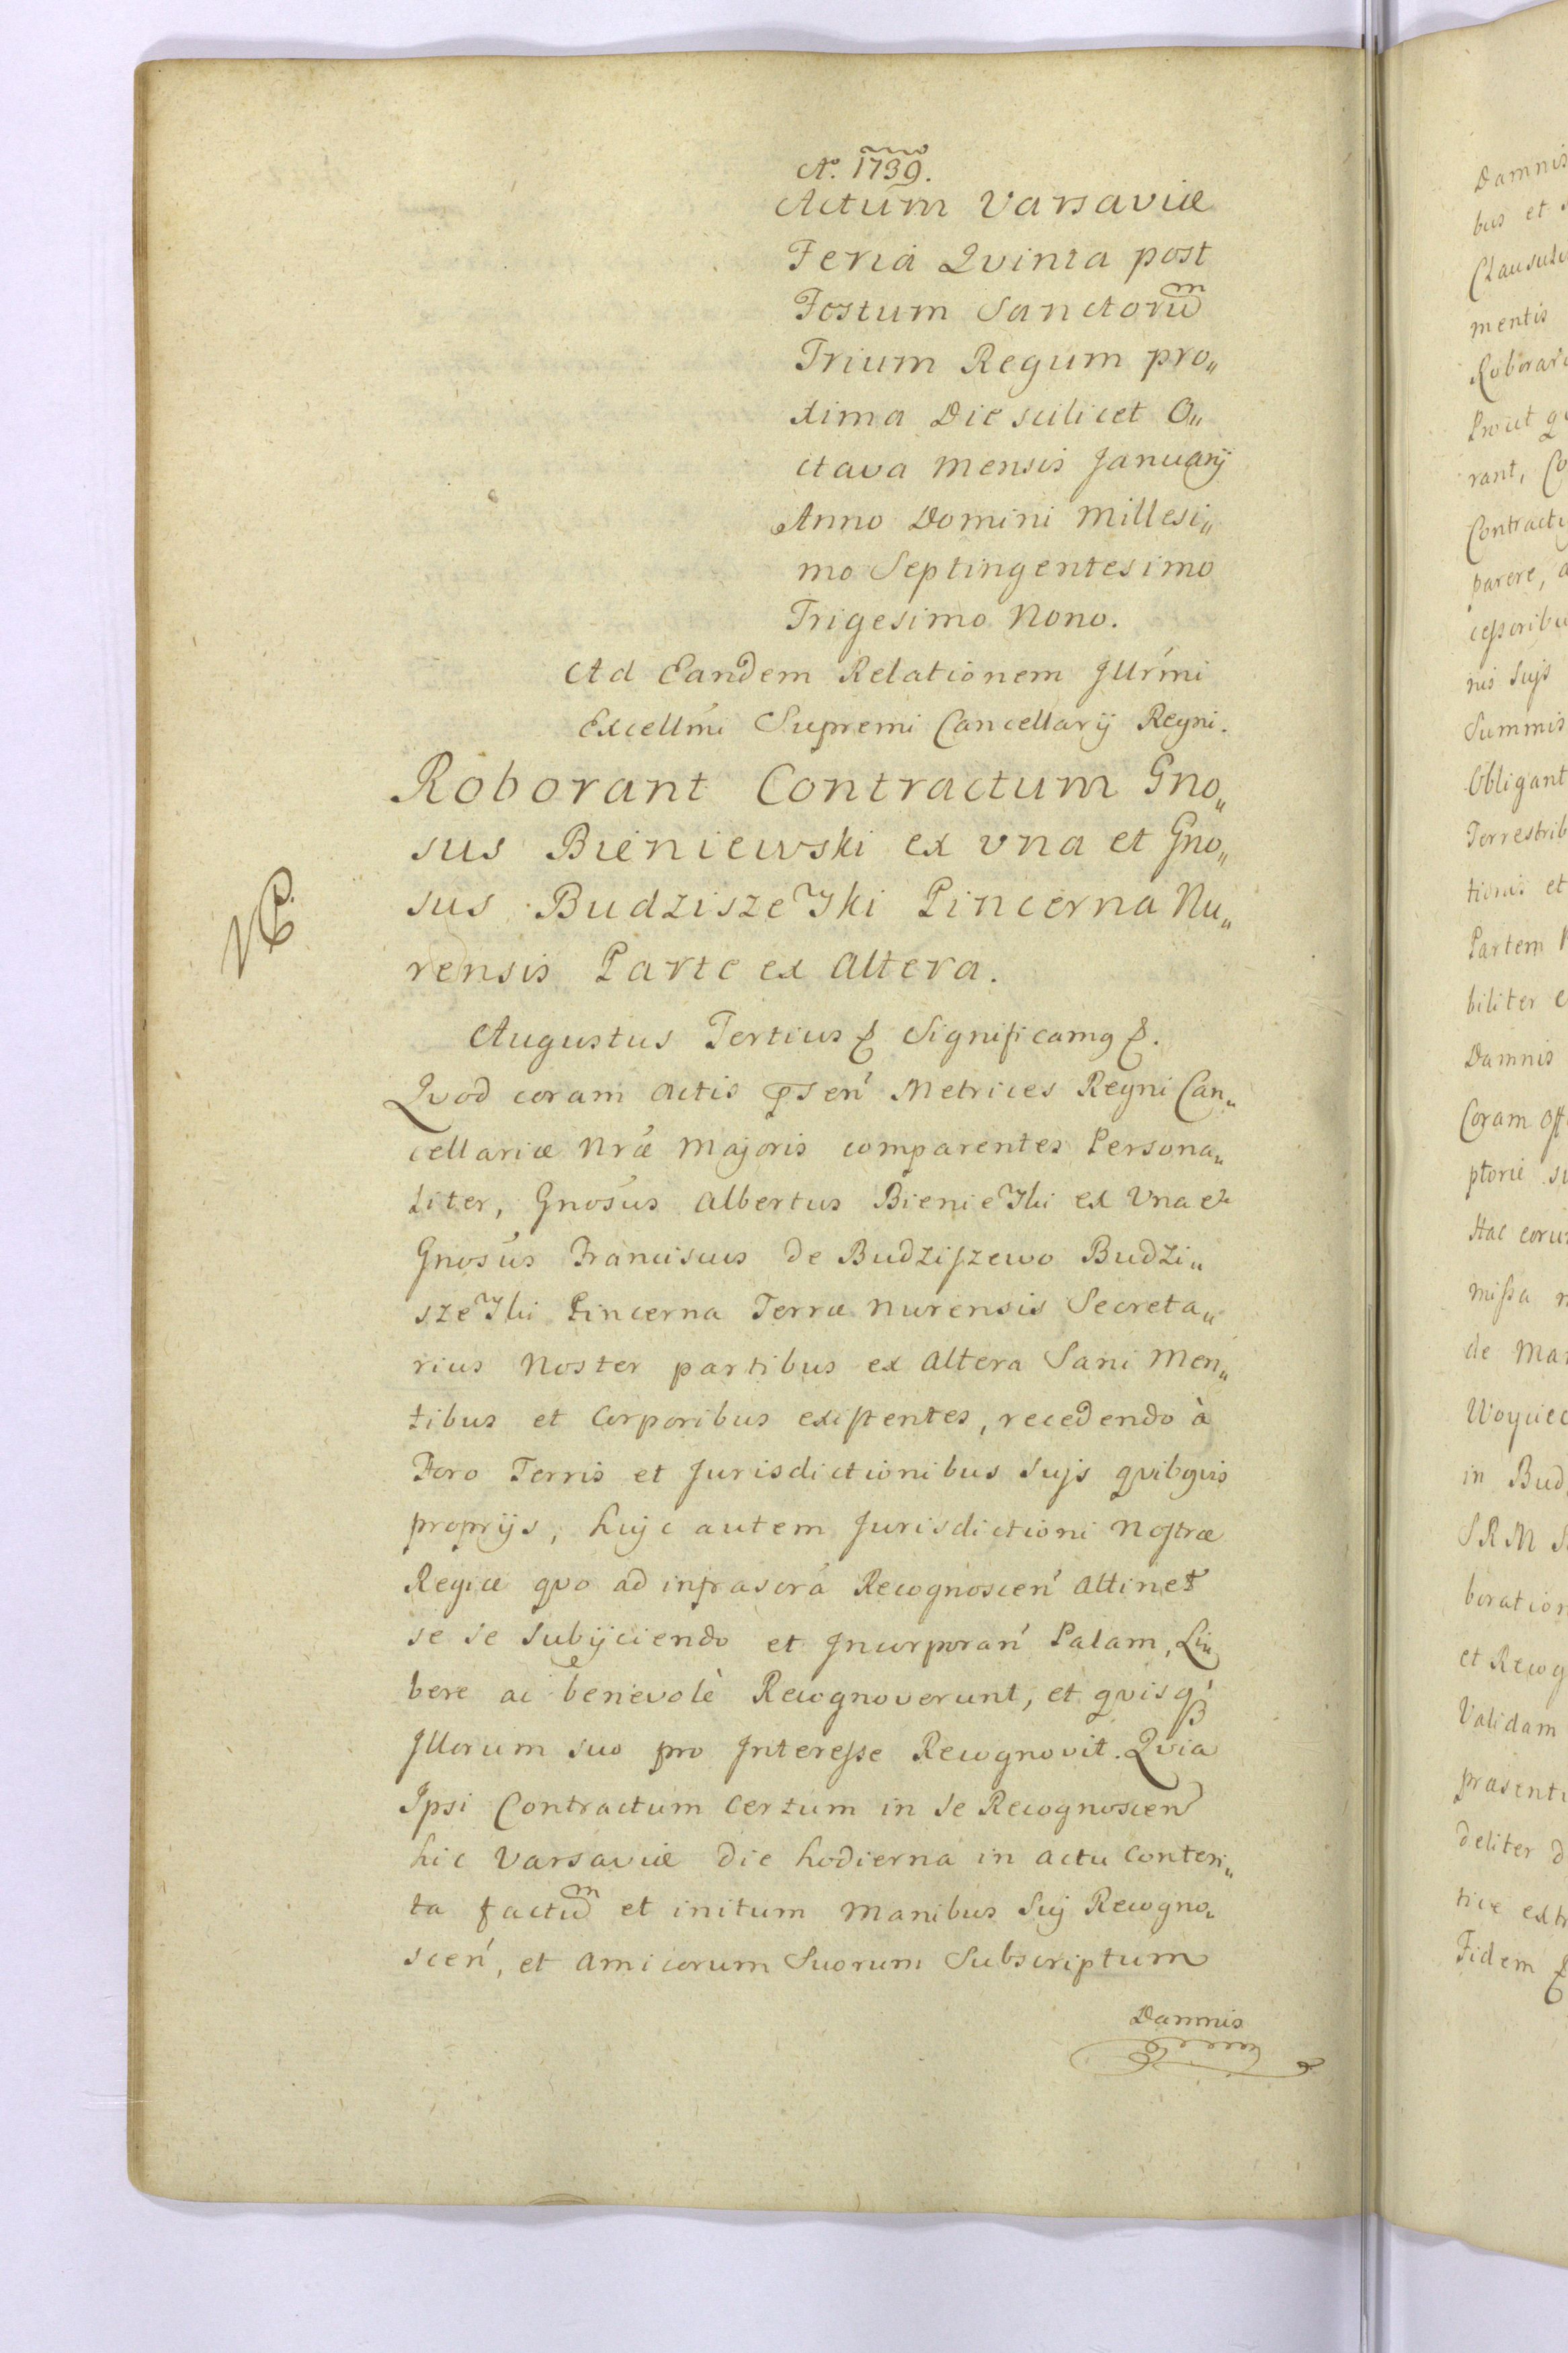 Aº. 1739.
Actum Varsaviæ
Feria Qvinta post
Festum Sanctorũm
Trium Regum pro„
xima Die scilicet O„
ctava Mensis Januarij
Anno Domini Millesi„
mo Septingentesimo
Trigesimo Nono.
Ad Eandem Relationem Jllrmi
Excellmi Supremi Cancellarij Regni.
Roborant Contractum Gno„
sus Bieniewski ex vna et Gno„
sus Budziszewski Pincerna Nu„
rensis Parte ex Altera.
Augustus Tertius &. Significamq &.
Qvod coram Actis psen' Metrices Regni Can„
cellariæ Nræ Majoris comparentes Persona„
liter, Gnosus Albertus Bieniewski ex Vna et
Gnosus Franciscus de Budziszewo Budzi„
szewski Pincerna Terræ Nurensis Secreta„
rius Noster partibus ex Altera Sani Men„
tibus et Corporibus existentes, recedendo à
Foro Terris et Jurisdictionibus Sujs qvibqvis
proprijs, hujc autem Jurisdictioni Nostræ
Regiæ qvo ad infrascra Recognoscen' Attinet
se se Subijciendo et Jncorporan' Palam, Li„
bere ac benevolè Recognoverunt, et qvisq'
Jllorum suo pro Jnteresse Recognovit. Qvia
Ipsi Contractum Certum in se Recognoscen'
hic Varsaviæ die hodierna in Actu Conten„
ta factũm et initum Manibus Suj Recogno„
scen', et Amicorum Suorum Subscriptum
Damnis
Damnis
bus et
mentis
Prout
rant,
parere,
nis Sujs
Summis
Obligant
et
Partem
biliter
Damnis
Coram
Hac
missa
de
in Bud
SRM
et Recog
Validam
deliter
Fidem